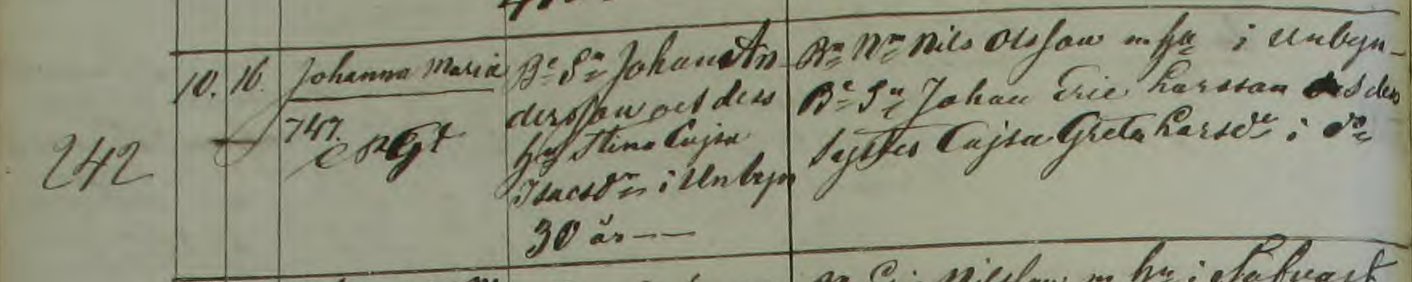 242
10. 16. Johanna Maria
747.
Be. Sn Johan An-
dersson och dess
hu Stina Cajsa
Isacsdr i Unbyn
30 år ——
Bn Nn Nils Olsson m hu i Unbyn
Be Sn Johan Eric Larsson och dess
syster Cajsa Greta Larsdr i do